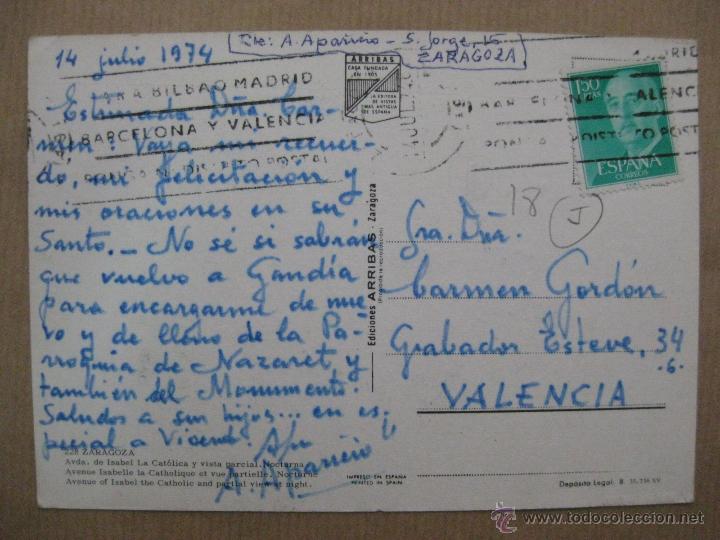 Rte: A. Aparicio - S. Jorge, 15
ZARAGOZA
14 julio 1974
ARRIBAS
CASA FUNDADA
EN 1905
LA EDITORA
DE VISTAS
MAS ANTIGUA
DE ESPAÑA
PARA BILBAO MADRID
BARCELONA Y VALENCIA
DISTRITO POSTAL
Estimada Dña Car-
men: Vaya un recuer-
do, mi felicitación y
mis oraciones en su
Santo. - No sé si sabrán
que vuelvo a Gandía
para encargarme de nue-
vo y de lleno de la Pa-
rroquia de Nazaret, y
también del Monumento.
Saludos a sus hijos... en es-
pecial a Vicente.
A. Aparicio
1'50
PTAS
ESPAÑA
CORREOS
MADRID
VALENCIA
DISTRITO POSTAL
18
J
Sra. Dña.
Carmen Gordón
Grabador Esteve, 34
-6.
VALENCIA
Ediciones ARRIBAS - Zaragoza
(Prohibida la reproducción)
228 ZARAGOZA
Avda. de Isabel La Católica y vista parcial. Nocturna
Avenue Isabelle la Catholique et vue partielle. Nocturne
Avenue of Isabel the Catholic and partial view at night.
IMPRESO EN ESPAÑA
PRINTED IN SPAIN
Depósito Legal. B
todocoleccion.net